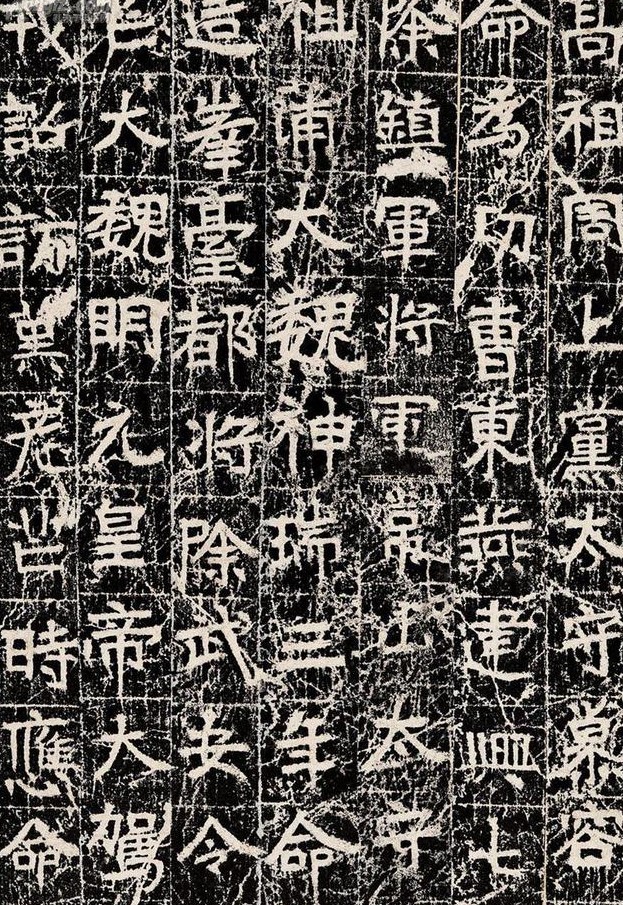 高祖周上黨太守慕容
命為功曹東燕建興七
除鎮軍将軍山太守
祖甫大魏神瑞三年命
造峯臺都将除武安令
大魏明元皇帝大駕
訪老昔時應命